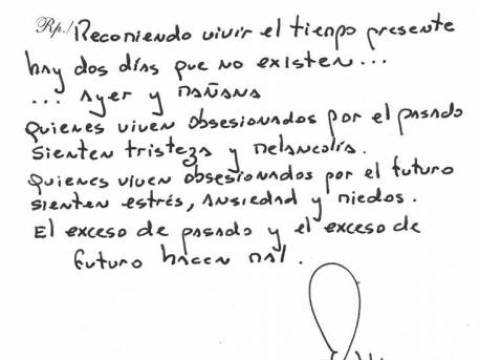 Rp./ Recomiendo vivir el tiempo presente
hay dos días que no existen...
... Ayer y mañana
Quienes viven obsesionados por el pasado
sienten tristeza y melancolía.
Quienes viven obsesionados por el futuro
sienten estrés, ansiedad y miedos.
El exceso de pasado y el exceso de
futuro hacen mal.